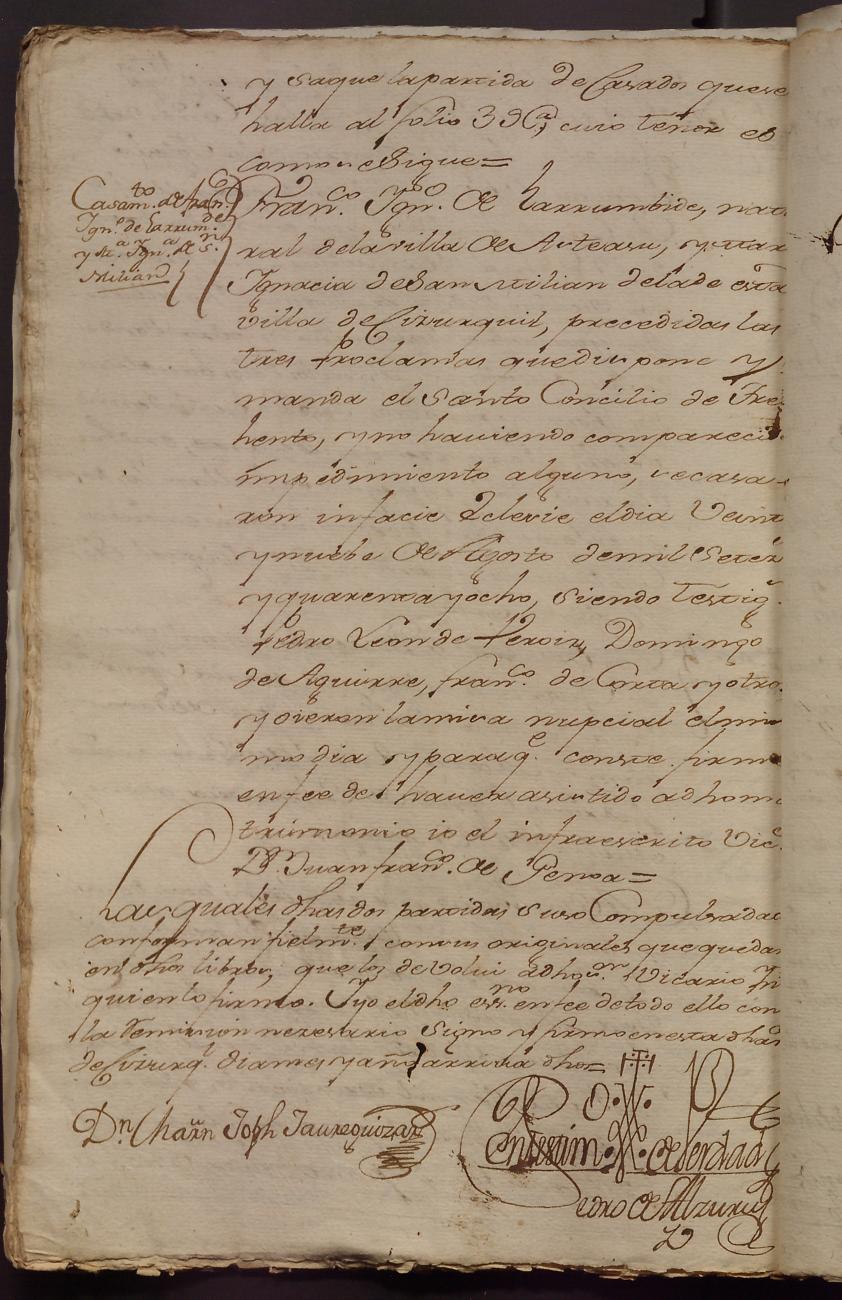 y saque la partida de Casados que se
halla al folio 39 cuio tenor es
como se sigue =
Casam.to de fran.co
Ign.o de Larrum.de
y M.a Ign.a de S.n
Milian
Fran.co Ygn.o de Larrumbide, natu
ral de la villa de Asteasu, y Mar
Ignacia de San Milian dela de esta
villa de Cizurquil, precedidas las
tres Proclamas que dispone y
manda el Santo Concilio de Tre
hento, y no haviendo comparecido
impedimiento alguno, se casa
ron infacie Eclesie el dia Veint
y nuebe de Agosto de mil Setez
y quarenta y ocho, siendo testig.
Pedro Leon de Peroiz, Domingo
de Aguirre, fran.co de Corta y otro
y oieron la misa nupcial el mis
mo dia y para q.e conste firm
en fee de haver asistido a dho ma
trimonio io el infraescrito Vic.
D.n Juan fran.co de Sensa =
Las quales dhas dos partidas suso Compulsadas
conforman fielm.te con sus originales que quedan
en dhos libros, que los devolui a dho Vicario
quien lo firmo. Y yo el dho ess.no en fee de todo ello con
la Remision nezesario Signo y firmo en esta dha
de Cizurq.l dia mes y año arriva dho =
D.n Martn Joseph Jaureguizar
En testim.o de Verdad
Pedro de Alzuru